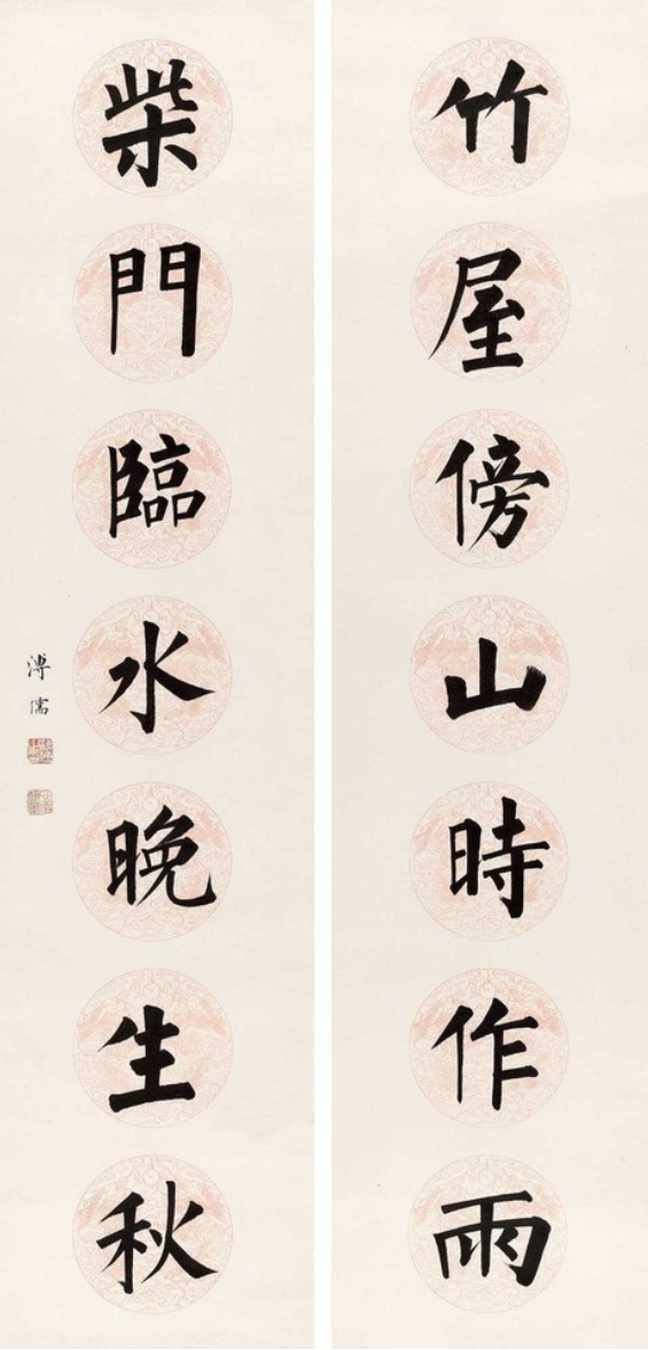 竹屋傍山時作雨
柴門臨水晚生秋
溥儒